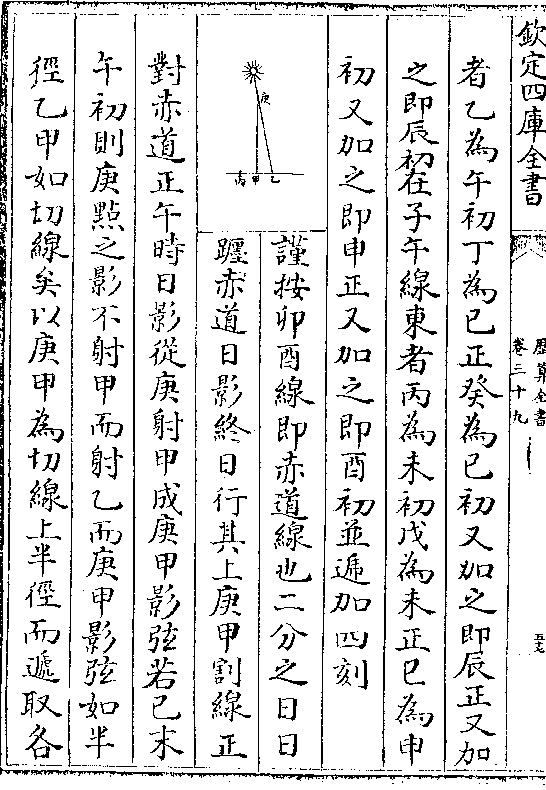 欽定四庫全書
歷算全書
卷三十九
者乙為午初丁為巳正癸為巳初又加之即辰正又加
之即辰初在子午線東者丙為未初戊為未正已為申
初又加之即申正又加之即酉初並遞加四刻
庚
丙甲乙
謹按卯酉線即赤道線也二分之日日
躔赤道日影終日行其上庚甲割線正
對赤道正午時日影從庚射甲成庚甲影弦若已末
午初則庚點之影不射甲而射乙而庚甲影弦如半
徑乙甲如切線矣以庚甲為切線上半徑而遞取各